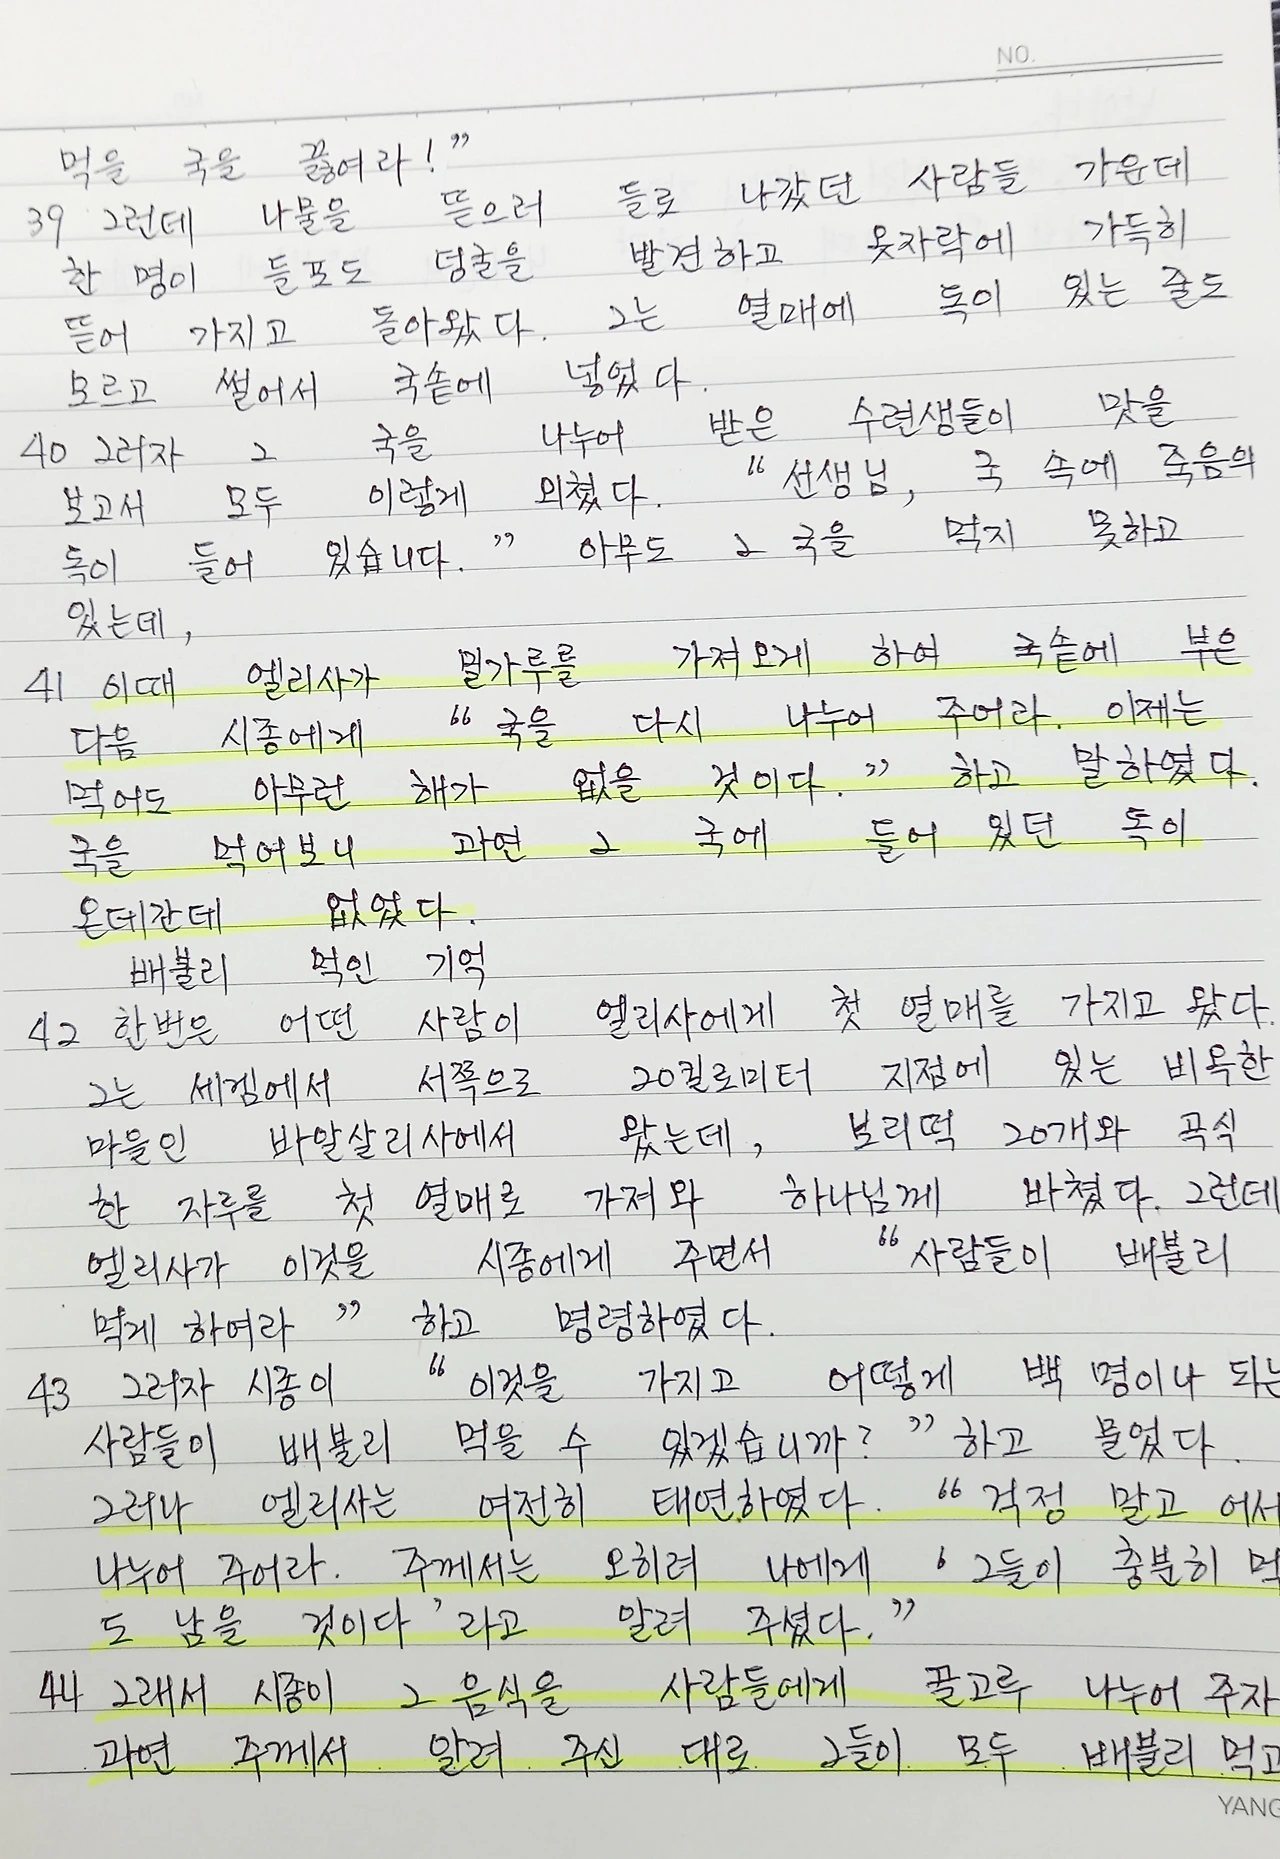 NO.
먹을 국을 끓여라!”
39 그런데 나물을 뜯으러 들로 나갔던 사람들 가운데
한 명이 들포도 덩굴을 발견하고 옷자락에 가득히
뜯어 가지고 돌아왔다. 그는 열매에 독이 있는 줄도
모르고 썰어서 국솥에 넣었다.
40 그러자 그 국을 나누어 받은 수련생들이 맛을
보고서 모두 이렇게 외쳤다. “선생님, 국 속에 죽음의
독이 들어 있습니다.” 아무도 그 국을 먹지 못하고
있는데,
41 이때 엘리사가 밀가루를 가져오게 하여 국솥에 부은
다음 시종에게 “국을 다시 나누어 주어라. 이제는
먹어도 아무런 해가 없을 것이다.” 하고 말하였다.
국을 먹어보니 과연 그 국에 들어 있던 독이
온데간데 없었다.
배불리 먹인 기억
42 한번은 어떤 사람이 엘리사에게 첫 열매를 가지고 왔다.
그는 세겜에서 서쪽으로 20킬로미터 지점에 있는 비옥한
마을인 바알살리사에서 왔는데, 보리떡 20개와 곡식
한 자루를 첫 열매로 가져와 하나님께 바쳤다. 그런데
엘리사가 이것을 시종에게 주면서 “사람들이 배불리
먹게 하여라” 하고 명령하였다.
43 그러자 시종이 “이것을 가지고 어떻게 백 명이나 되는
사람들이 배불리 먹을 수 있겠습니까?” 하고 물었다.
그러나 엘리사는 여전히 태연하였다. “걱정 말고 어서
나누어 주어라. 주께서는 오히려 나에게 ‘그들이 충분히 먹
도 남을 것이다’라고 알려 주셨다.”
44 그래서 시종이 그 음식을 사람들에게 골고루 나누어 주자
과연 주께서 알려 주신 대로 그들이 모두 배불리 먹고
YANG